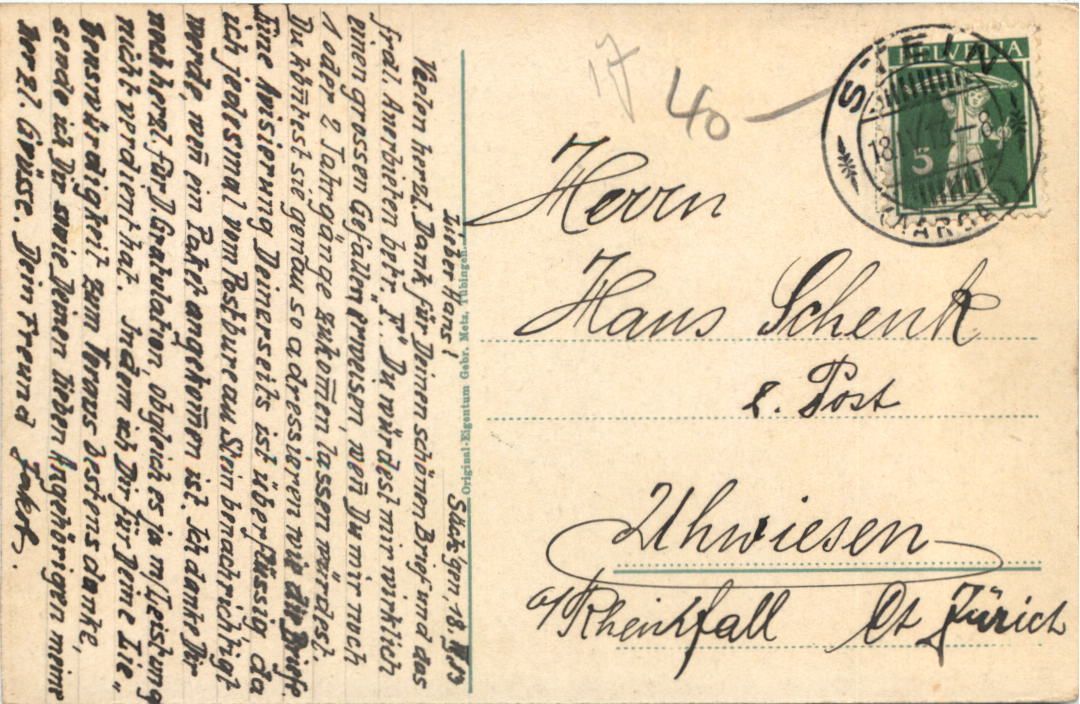 Lieber Hans!
Schatzgen, 18. IV 13
Vielen herzl. Dank für Deinen schönen Brief und das
frdl. Anerbieten betr. "F." Du würdest mir wirklich
einen grossen Gefallen erweisen, wen̄ Du mir noch
1 oder 2 Jahrgänge zukom̄en lassen würdest.
Du kön̄test sie genau so adressieren wie die Briefe
Eine Avisierung Deinerseits ist überflüssig da
ich jedesmal vom Postbureau Stein benachrichtigt
werde, wen̄ ein Paket angekom̄en ist. Ich danke Dir
noch herzl. für D. Gratulation, obgleich es ja m/Leistung
nicht verdient hat. Indem ich Dir für Deine Lie-
benswürdigkeit zum Voraus bestens danke,
sende ich Dir sowie Deinen lieben Angehörigen meine
herzl. Grüsse. Dein Freund Jakob.
Original-Eigentum Gebr. Metz, Tübingen.
17
40
HELVETIA
5
STEIN
18.IV.13-8
(AARGAU)
Herrn
Hans Schenk
z. Post
Uhwiesen
a/Rheinfall Ct Zürich